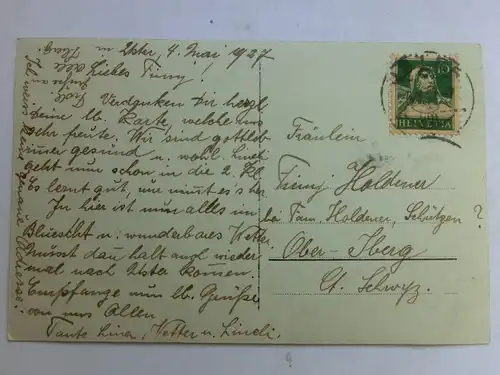 Uster, 4. Mai 1927
Liebes Timy!
Verdanken Dir herzl.
Deine lb. Karte, welche uns
sehr freute. Wir sind gottlob
immer gesund u. wohl. Lineli
geht nun schon in die 2. Kl.
Es lernt gut, wie
In hier ist nun alles im
Bluescht u. wunderbares Wetter
Musst dann halt auch wieder
mal nach Uster kommen.
Empfange nun lb. Grüsse
von uns Allen
Tante Lina, Vetter u. Lineli.
Ich weiss Deine genaue Adresse
Grüsse an
Alle
in Iberg.
10
HELVETIA
Fräulein
Timy Holdener
bei Fam. Holdener, Schützen ?
Ober-Iberg
Ct. Schwyz.